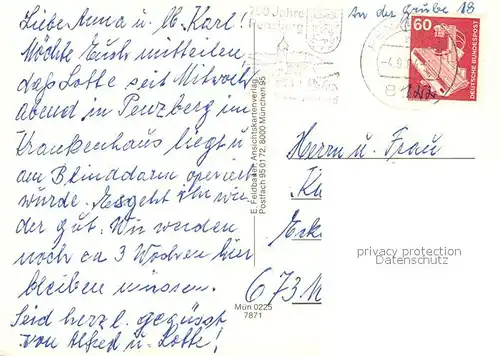 Liebe Anna u. M. Karl!
Möchte Euch mitteilen
daß Lotte seit Mittwoch
abend in Penzberg im
Krankenhaus liegt u
am Blinddarm operiert
wurde. Es geht ihr wie-
der gut. Wir werden
noch ca 3 Wochen hier
bleiben müssen.
Seid herzl. gegüsst
von Alfred u. Lotte!
E. Feldbauer, Ansichtskartenverlag
Postfach 950172, 8000 München 95
Mün 0225
7871
700 Jahre
Penzberg
An der Grube 18
60
DEUTSCHE BUNDESPOST
Herrn u. Frau
privacy protection
Datenschutz